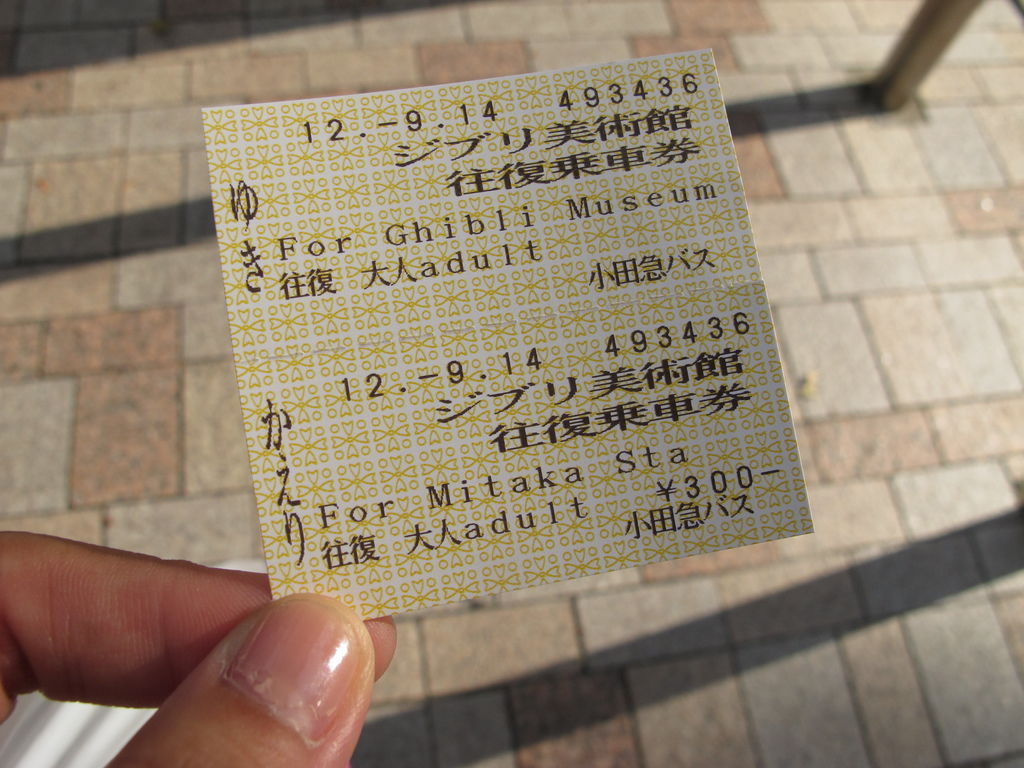 12.-9.14 493436
ジブリ美術館
往復乗車券
ゆき
For Ghibli Museum
往復 大人adult 小田急バス
12.-9.14 493436
ジブリ美術館
往復乗車券
かえり
For Mitaka Sta
¥300-
往復 大人adult 小田急バス